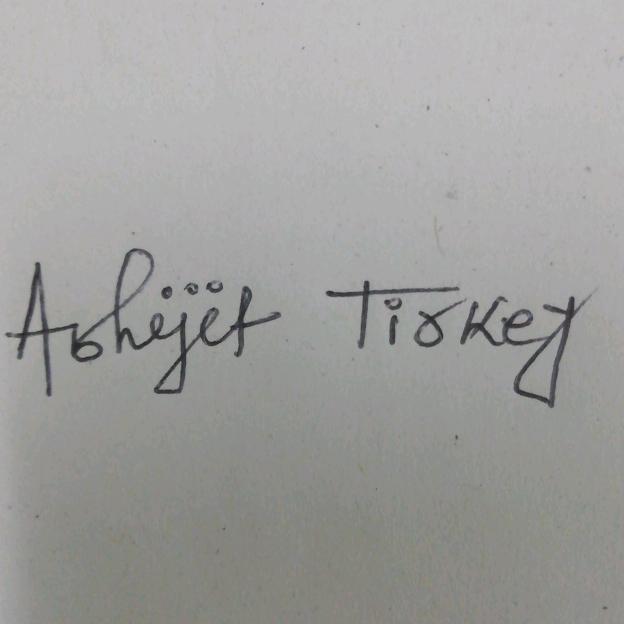 Abhijit Tirkey